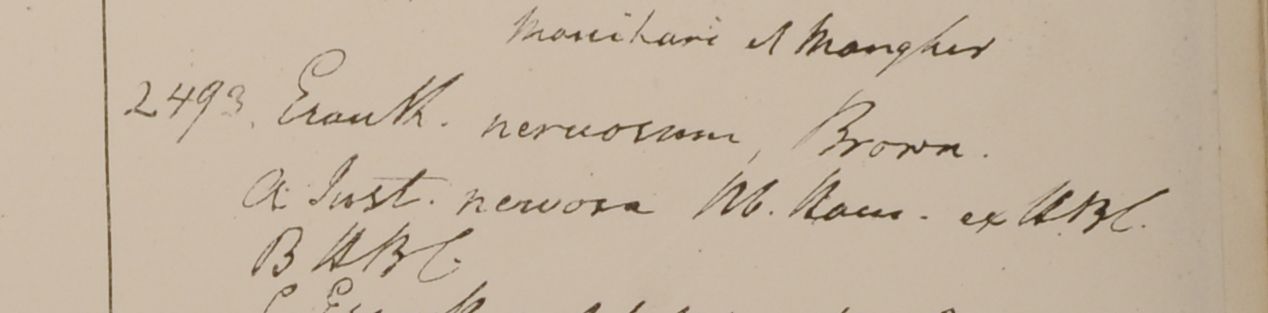 Monihari et Mongher
2493. Eranth. nervosum, Brown.
a Just. nervosa Hb. Ham. ex HBC.
B HBC.